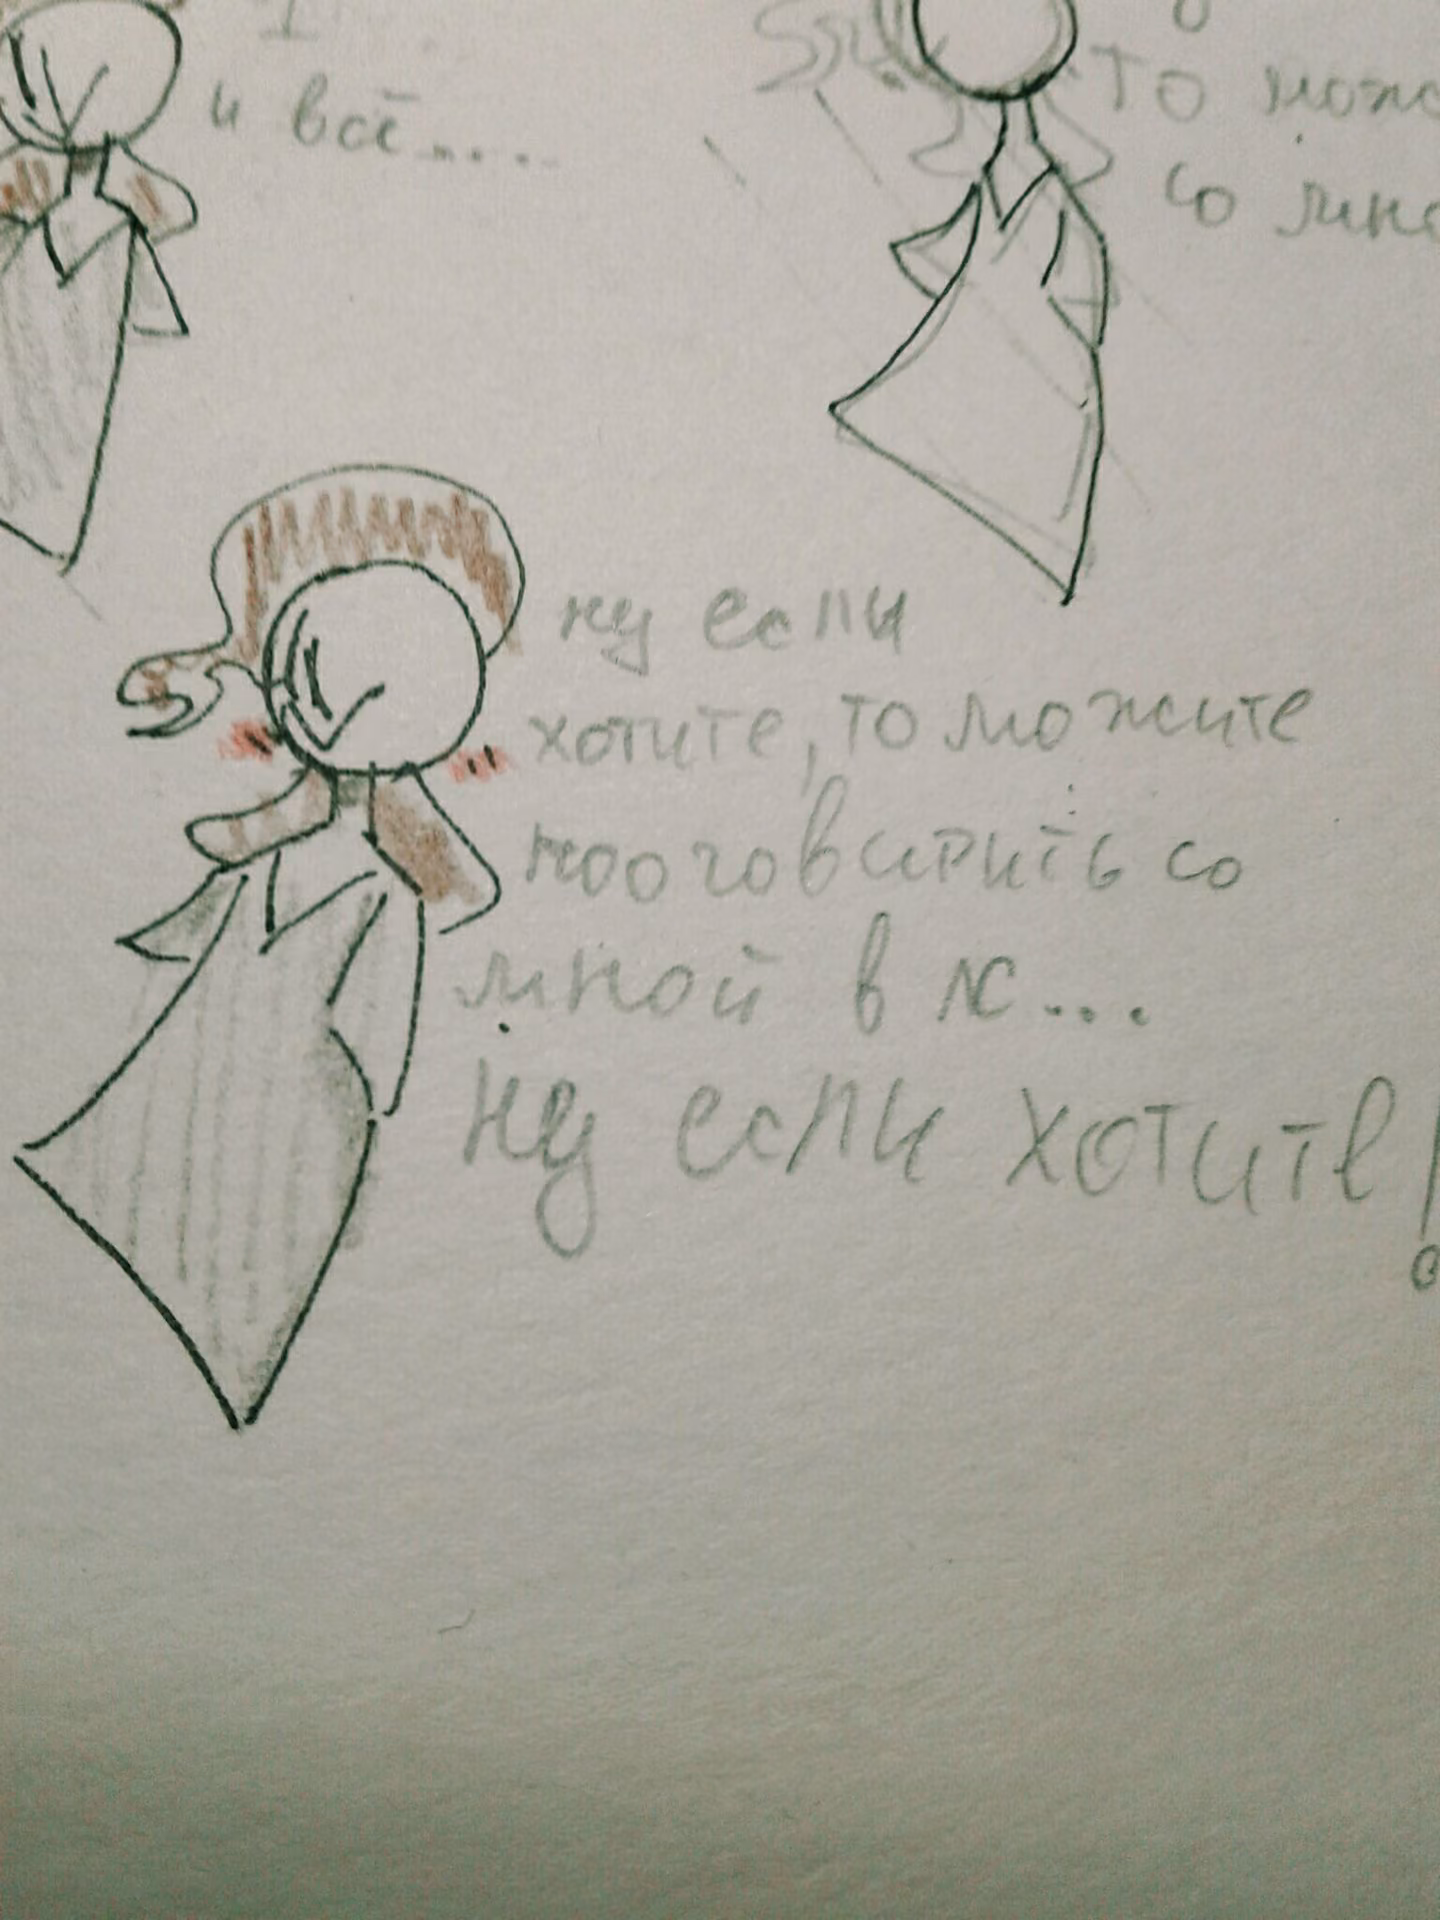 и всё.....
то може
со мно
ну если
хотите, то можите
пооговирить со
мной в лс...
ну если хотите!